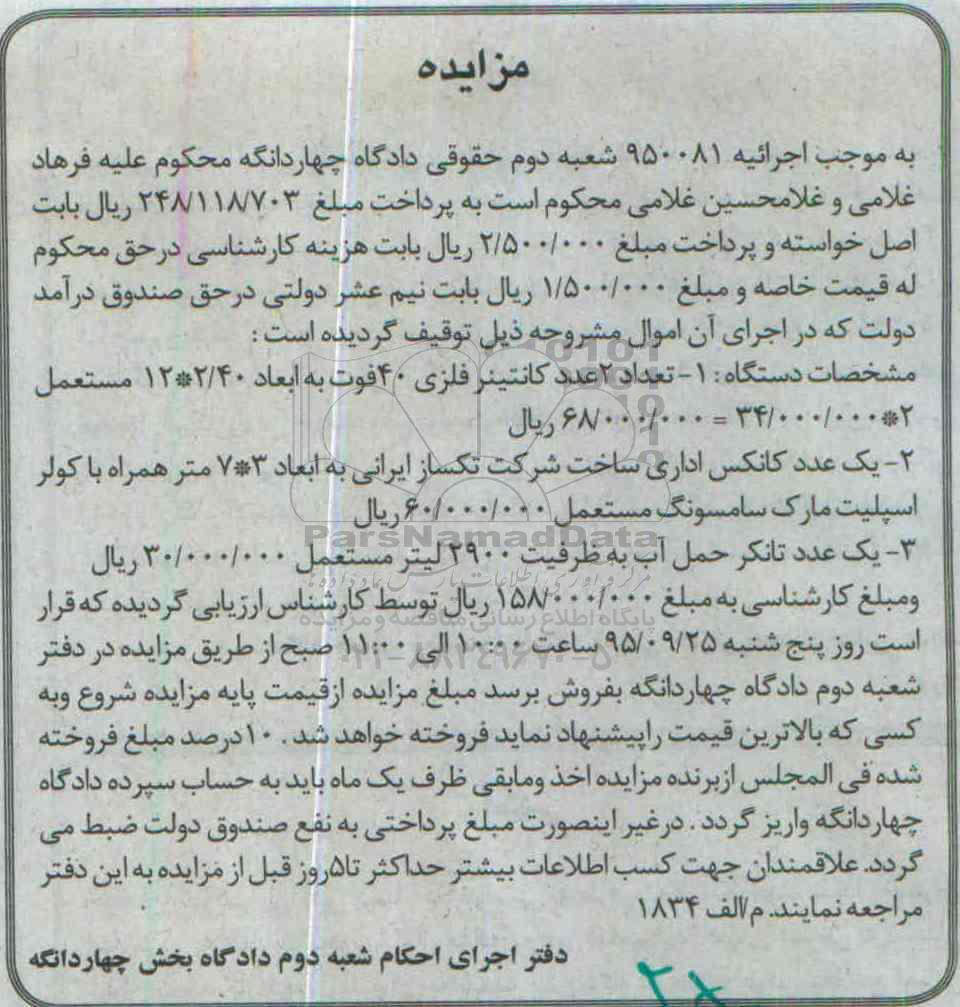 مزایده
به موجب اجرائیه ۹۵۰۰۸۱ شعبه دوم حقوقی دادگاه چهاردانگه محکوم علیه فرهاد
غلامی و غلامحسین غلامی محکوم است به پرداخت مبلغ ۲۴۸/۱۱۸/۷۰۳ ریال بابت
اصل خواسته و پرداخت مبلغ ۲/۵۰۰/۰۰۰ ریال بابت هزینه کارشناسی درحق محکوم
له قیمت خاصه و مبلغ ۱/۵۰۰/۰۰۰ ریال بابت نیم عشر دولتی درحق صندوق درآمد
دولت که در اجرای آن اموال مشروحه ذیل توقیف گردیده است :
مشخصات دستگاه : ۱- تعداد ۲عدد کانتینر فلزی ۴۰فوت به ابعاد ۲/۴۰*۱۲ مستعمل
۲*۳۴/۰۰۰/۰۰۰ = ۶۸/۰۰۰/۰۰۰ ریال
۲- یک عدد کانکس اداری ساخت شرکت تکساز ایرانی به ابعاد ۳*۷ متر همراه با کولر
اسپلیت مارک سامسونگ مستعمل ۶۰/۰۰۰/۰۰۰ ریال
ParsNamadData
۳- یک عدد تانکر حمل آب به ظرفیت ۲۹۰۰ لیتر مستعمل ۳۰/۰۰۰/۰۰۰ ریال
ومبلغ کارشناسی به مبلغ ۱۵۸/۰۰۰/۰۰۰ ریال توسط کارشناس ارزیابی گردیده که قرار
پایگاه اطلاع رسانی مناقصه و مزایده
است روز پنج شنبه ۹۵/۰۹/۲۵ ساعت ۱۰:۰۰ الی ۱۱:۰۰ صبح از طریق مزایده در دفتر
۰۲۱-۸۸۳۴۹۶۷۰-۵
شعبه دوم دادگاه چهاردانگه بفروش برسد مبلغ مزایده ازقیمت پایه مزایده شروع وبه
کسی که بالاترین قیمت راپیشنهاد نماید فروخته خواهد شد . ۱۰درصد مبلغ فروخته
شده فی المجلس ازبرنده مزایده اخذ ومابقی ظرف یک ماه باید به حساب سپرده دادگاه
چهاردانگه واریز گردد . درغیر اینصورت مبلغ پرداختی به نفع صندوق دولت ضبط می
گردد. علاقمندان جهت کسب اطلاعات بیشتر حداکثر تا۵روز قبل از مزایده به این دفتر
مراجعه نمایند. م/الف ۱۸۳۴
دفتر اجرای احکام شعبه دوم دادگاه بخش چهاردانگه